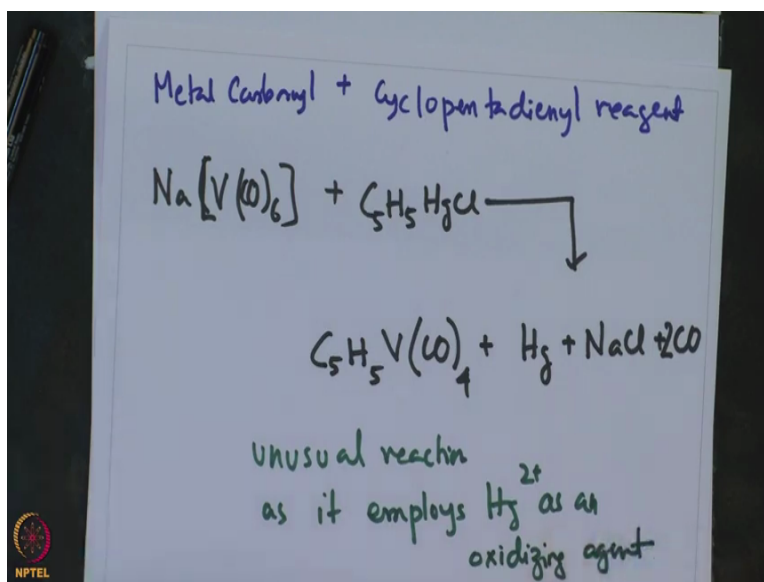 Metal Carbonyl + Cyclopentadienyl reagent
Na[V(CO)6] + C5H5HgCl
C5H5V(CO)4 + Hg + NaCl + 2CO
unusual reactin
as it employs Hg2+ as an
oxidizing agent
NPTEL